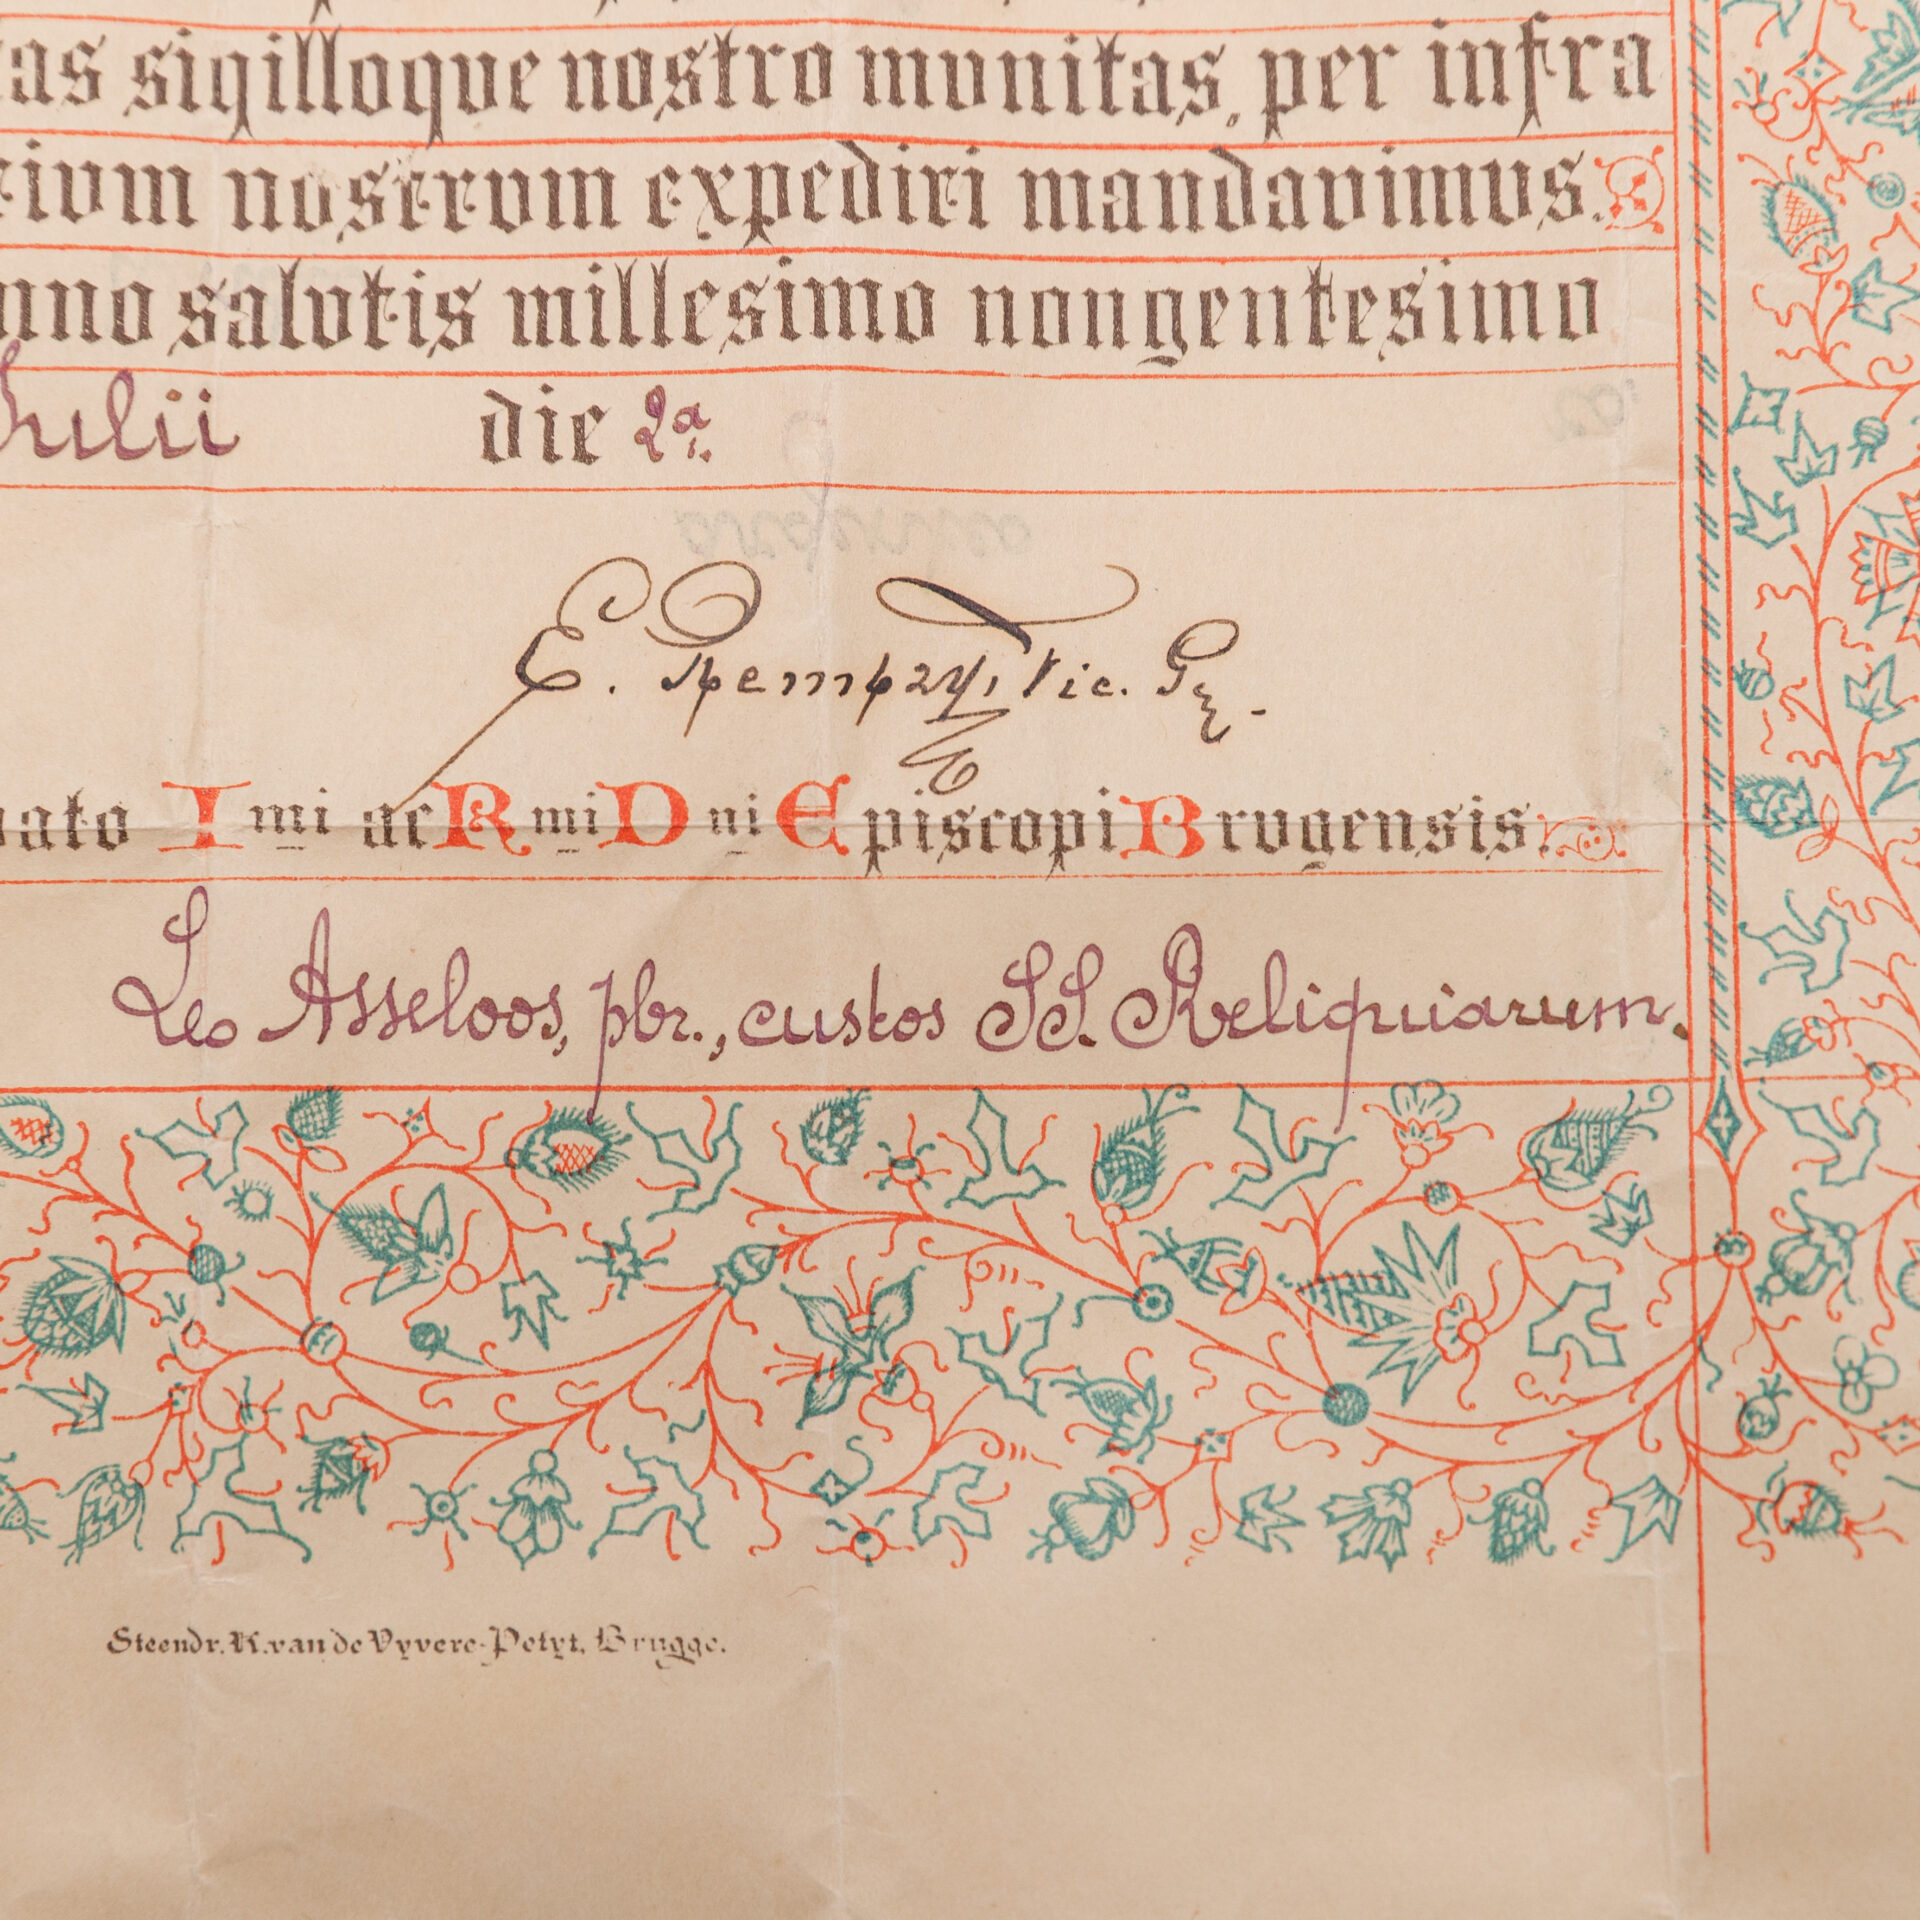 as sigilloque nostro munitas, per infra
rium nostrum expediri mandavimus.
nno salutis millesimo nongentesimo
Julii die 2a.
E. Rembry, Vic. G
nato Imi ac Rmi Dni Episcopi Brugensis.
Leo Asseloos, pbr., custos SS. Reliquiarum.
Steendr. K. van de Vyvere-Petyt, Brugge.